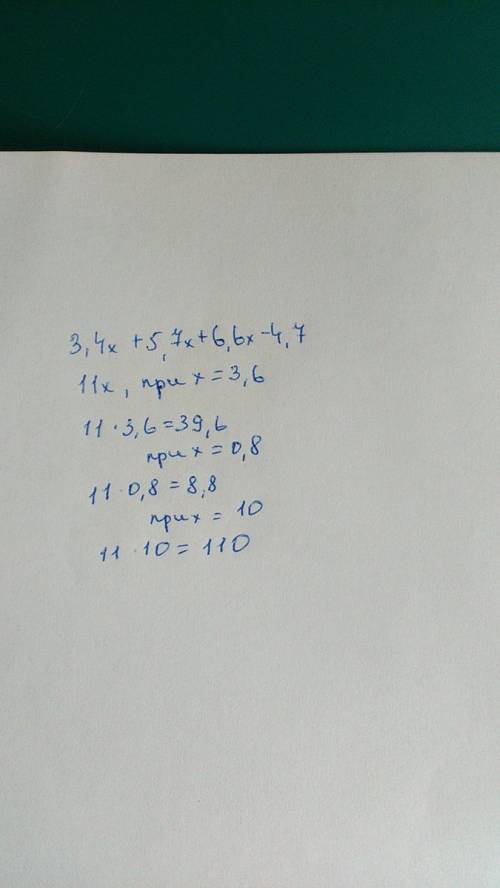 3,4x +5,7x+6,6x-4,7
11x, при x=3,6
11·3,6=39,6
при x=0,8
11·0,8=8,8
при x= 10
11·10=110